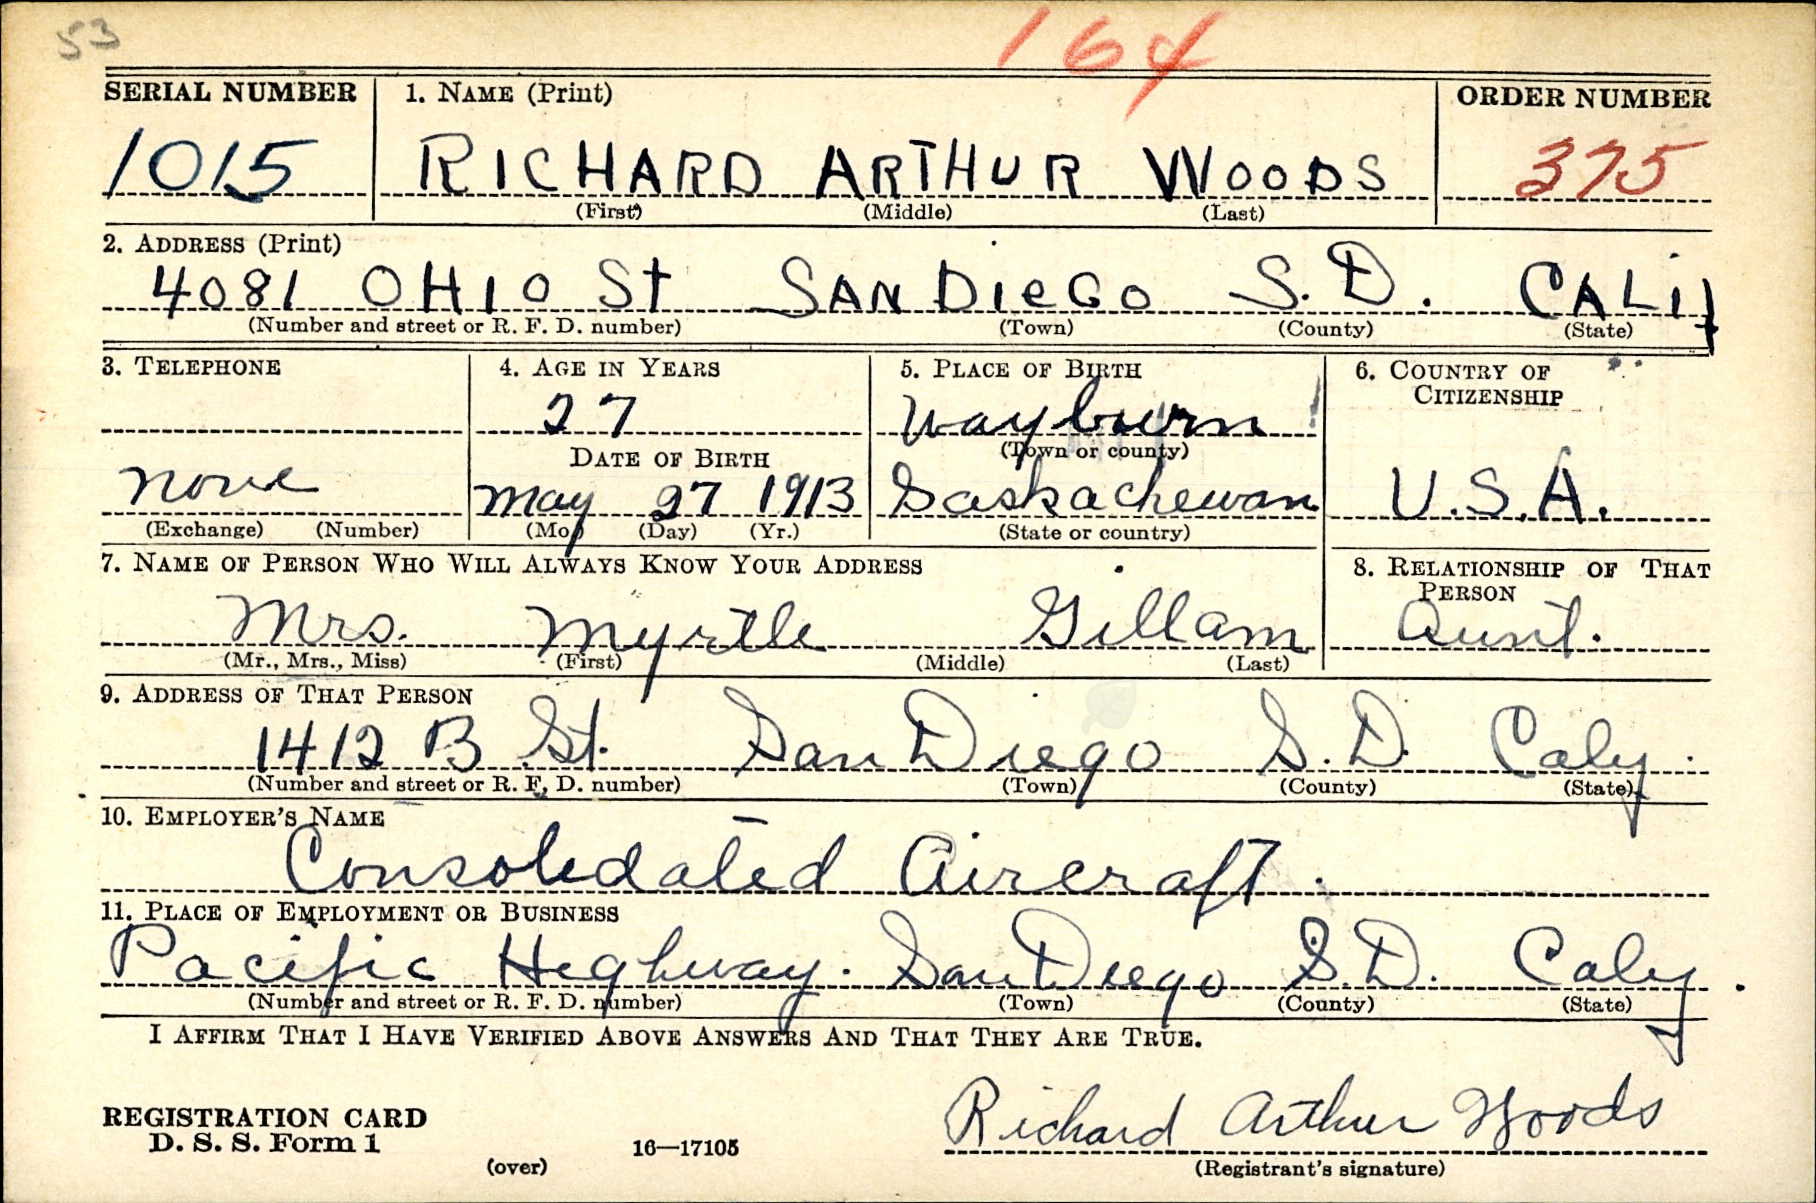 53
164
SERIAL NUMBER 1. NAME (Print) ORDER NUMBER
1015 RICHARD ARTHUR WOODS 375
(First) (Middle) (Last)
2. ADDRESS (Print)
4081 OHIO St SAN DIEGO S.D. CALif
(Number and street or R. F. D. number) (Town) (County) (State)
3. TELEPHONE 4. AGE IN YEARS 5. PLACE OF BIRTH 6. COUNTRY OF
CITIZENSHIP
27 Wayburn
DATE OF BIRTH (Town or county)
none May 27 1913 Saskachewan U.S.A.
(Exchange) (Number) (Mo.) (Day) (Yr.) (State or country)
7. NAME OF PERSON WHO WILL ALWAYS KNOW YOUR ADDRESS 8. RELATIONSHIP OF THAT
PERSON
Mrs. Myrtle Gillam Aunt.
(Mr., Mrs., Miss) (First) (Middle) (Last)
9. ADDRESS OF THAT PERSON
1412 B St. San Diego S.D. Calif.
(Number and street or R. F. D. number) (Town) (County) (State)
10. EMPLOYER'S NAME
Consoledated Aircraft.
11. PLACE OF EMPLOYMENT OR BUSINESS
Pacific Highway. San Diego S.D. Calif.
(Number and street or R. F. D. number) (Town) (County) (State)
I AFFIRM THAT I HAVE VERIFIED ABOVE ANSWERS AND THAT THEY ARE TRUE.
REGISTRATION CARD
D. S. S. Form 1 16—17105 Richard Arthur Woods
(over) (Registrant's signature)